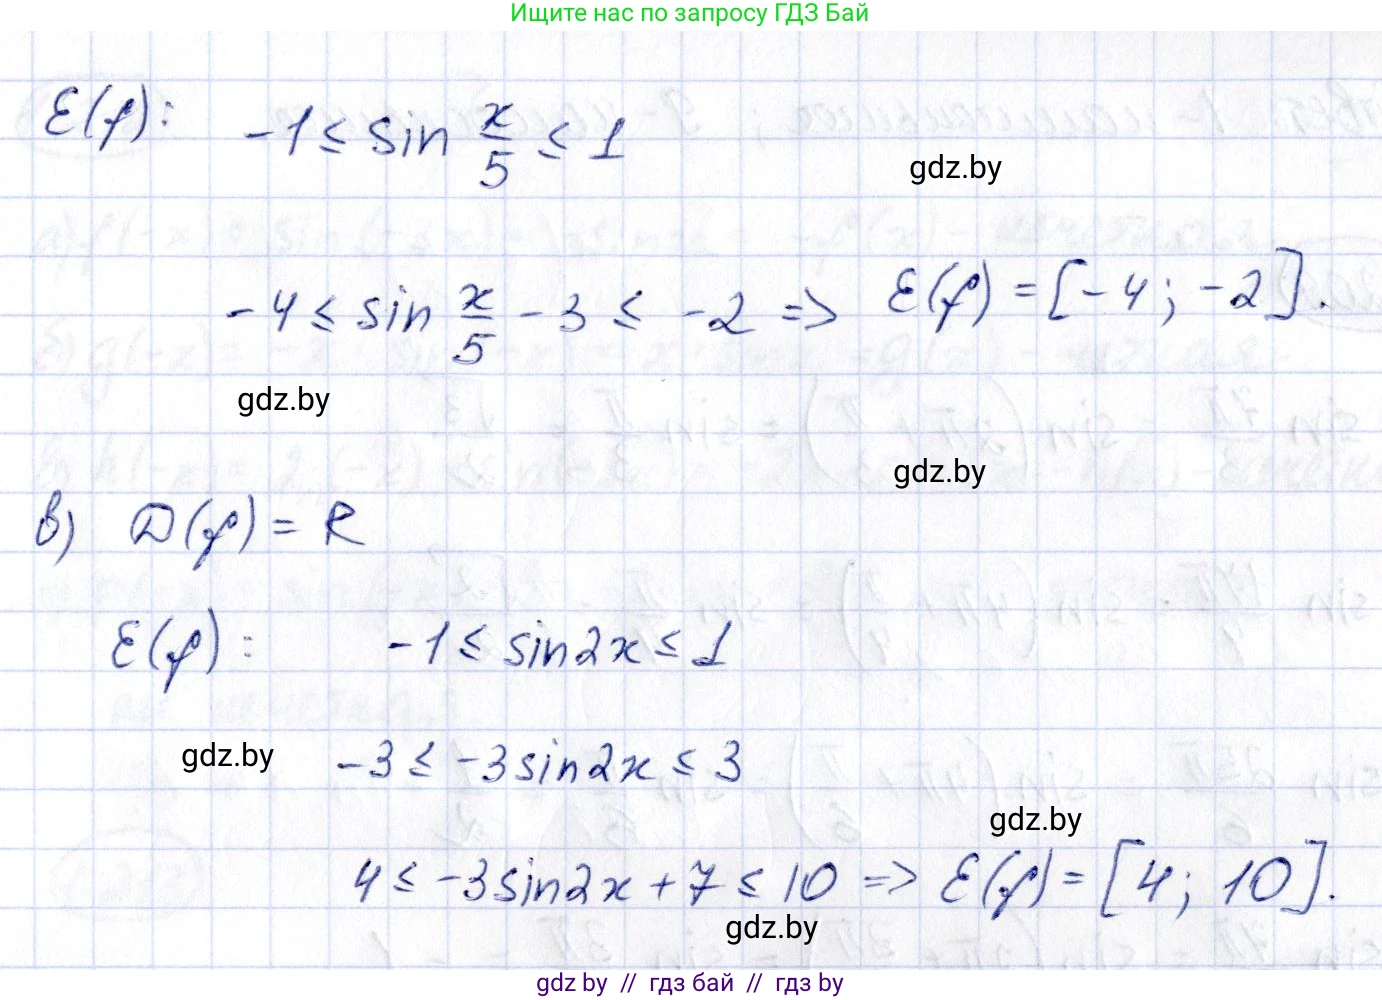 Ищите нас по запросу ГДЗ Бай
E(f): -1 ≤ sin x/5 ≤ 1
gdz.by
-4 ≤ sin x/5 - 3 ≤ -2 => E(f) = [-4; -2].
gdz.by
gdz.by
в) D(f) = R
E(f): -1 ≤ sin2x ≤ 1
gdz.by
-3 ≤ -3sin2x ≤ 3
gdz.by
4 ≤ -3sin2x + 7 ≤ 10 => E(f) = [4; 10].
gdz.by
gdz.by // гдз бай // гдз by